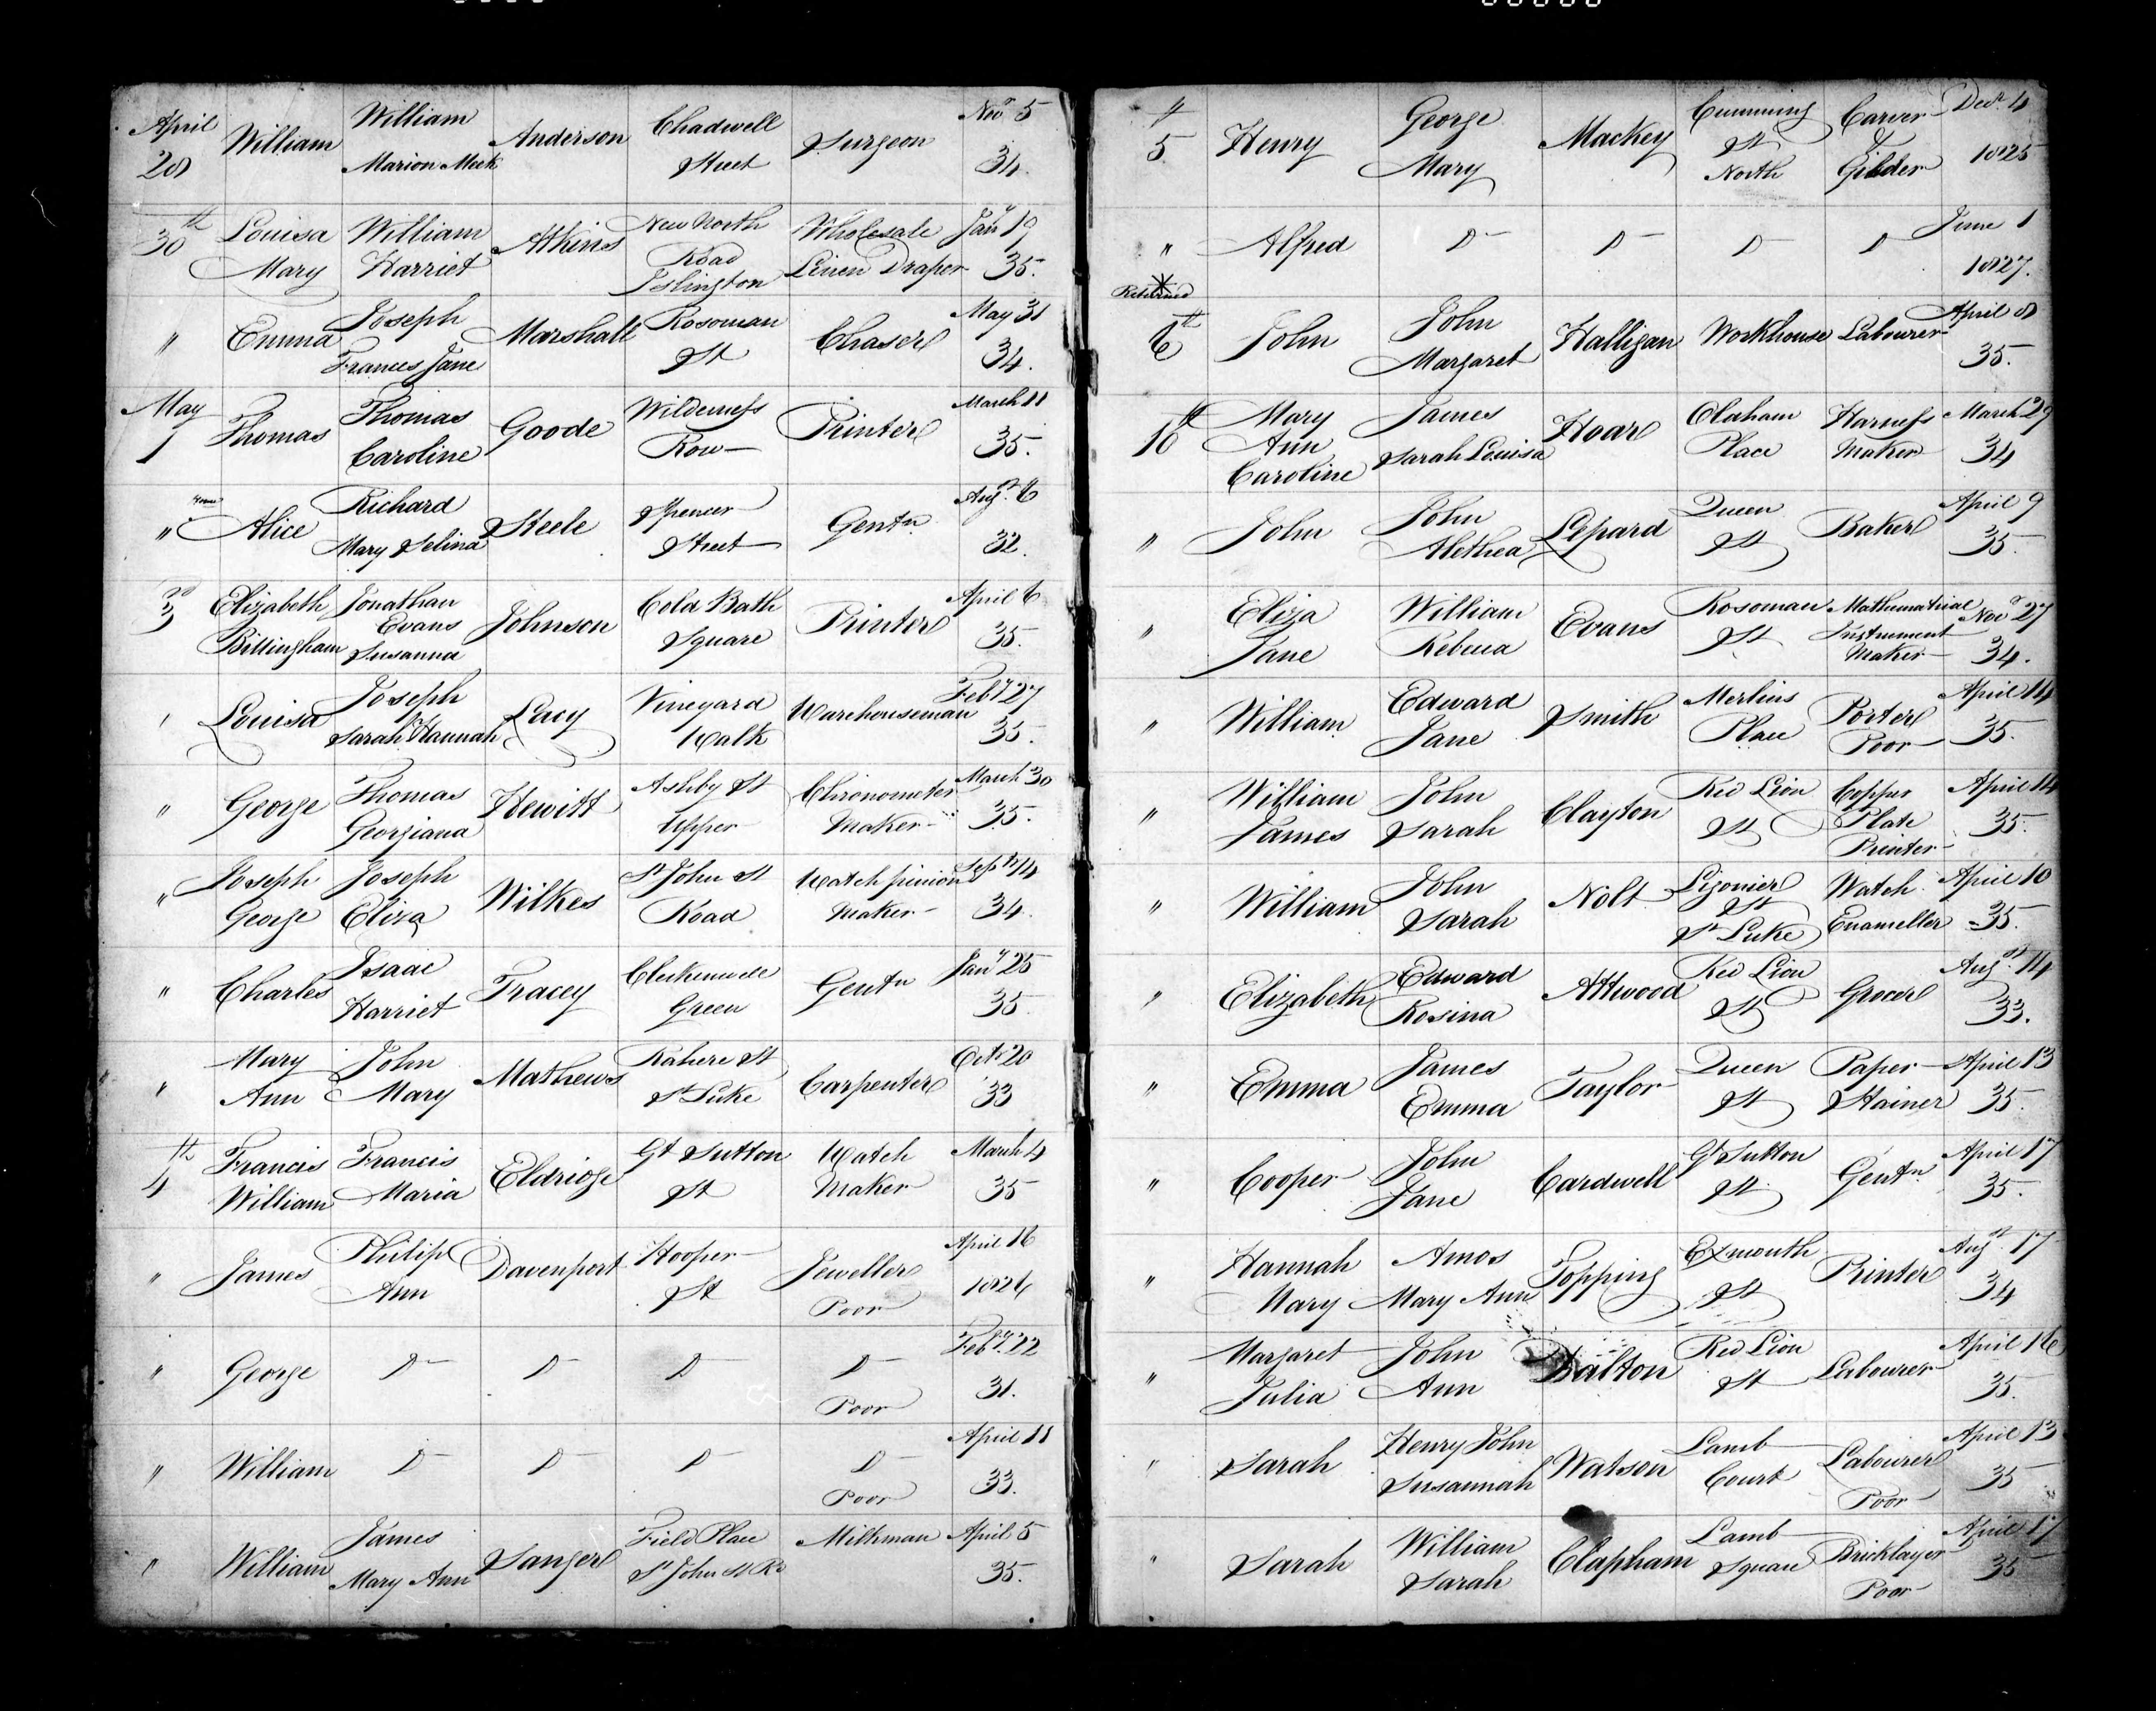 April 28 William William Anderson Chadwell Surgeon Novr 5
Marion Meek Street 34.
30th Louisa William Atkins New North Wholesale Jany 19
Mary Harriet Road Linen Draper 35.
Islington
" Emma Joseph Marshall Rosoman Chaser May 31
Frances Jane St 34.
May 1 Thomas Thomas Goode Wilderness Printer March 11
Caroline Row 35.
" Alice Richard Steele Spencer Gentn Augst 6
Mary Selina Street 32.
3rd Elizabeth Jonathan Johnson Cold Bath Printer April 6
Billingham Evans Square 35.
Susanna
" Louisa Joseph Lacy Vineyard Warehouseman Feby 27
Sarah Hannah Walk 35.
" George Thomas Hewitt Ashby St Chronometer March 30
Georgiana Upper Maker 35.
" Joseph Joseph Wilkes St John St Watch pinion Sepr 14
George Eliza Road Maker 34.
" Charles Isaac Tracey Clerkenwell Gentn Jany 25
Harriet Green 35.
" Mary John Mathews Rahere St Carpenter Octr 20
Ann Mary St Luke 33
4th Francis Francis Eldridge Gt Sutton Watch March 4
William Maria St Maker 35
" James Philip Davenport Hooper Jeweller April 16
Ann St Poor 1826
" George Do Do Do Do Feby 22
Poor 31.
" William Do Do Do Do April 11
Poor 33.
" William James Sanger Field Place Milkman April 5
Mary Ann St John St Rd 35.
5th Henry George Mackey Cumming Carver Decr 4
Mary St & 1825
North Gilder
" Alfred Do Do Do Do June 1
1827.
Returned
6th John John Halligan Workhouse Labourer April 8
Margaret 35.
10th Mary James Hoar Claham Harness March 29
Ann Sarah Louisa Place Maker 34
Caroline
" John John Lepard Queen Baker April 9
Alethea St 35.
" Eliza William Evans Rosoman Mathematical Novr 27
Jane Rebecca St Instrument 34.
Maker
" William Edward Smith Merlins Porter April 14
Jane Place Poor 35.
" William John Clayton Red Lion Copper April 14
James Sarah St Plate 35.
Printer
" William John Nolt Ligonier Watch April 10
Sarah St Enameller 35.
St Luke
" Elizabeth Edward Attwood Red Lion Grocer Augst 14
Rosina St 33.
" Emma James Taylor Queen Paper April 13
Emma St Stainer 35.
" Cooper John Cardwell Gt Sutton Gentn April 17
Jane St 35.
" Hannah Amos Topping Exmouth Printer Augst 17
Mary Mary Ann St 34
" Margaret John Dalton Red Lion Labourer April 16
Julia Ann St 35.
" Sarah Henry John Watson Lamb Labourer April 13
Susannah Court Poor 35
" Sarah William Clapham Lamb Bricklayer April 17
Sarah Square Poor 35